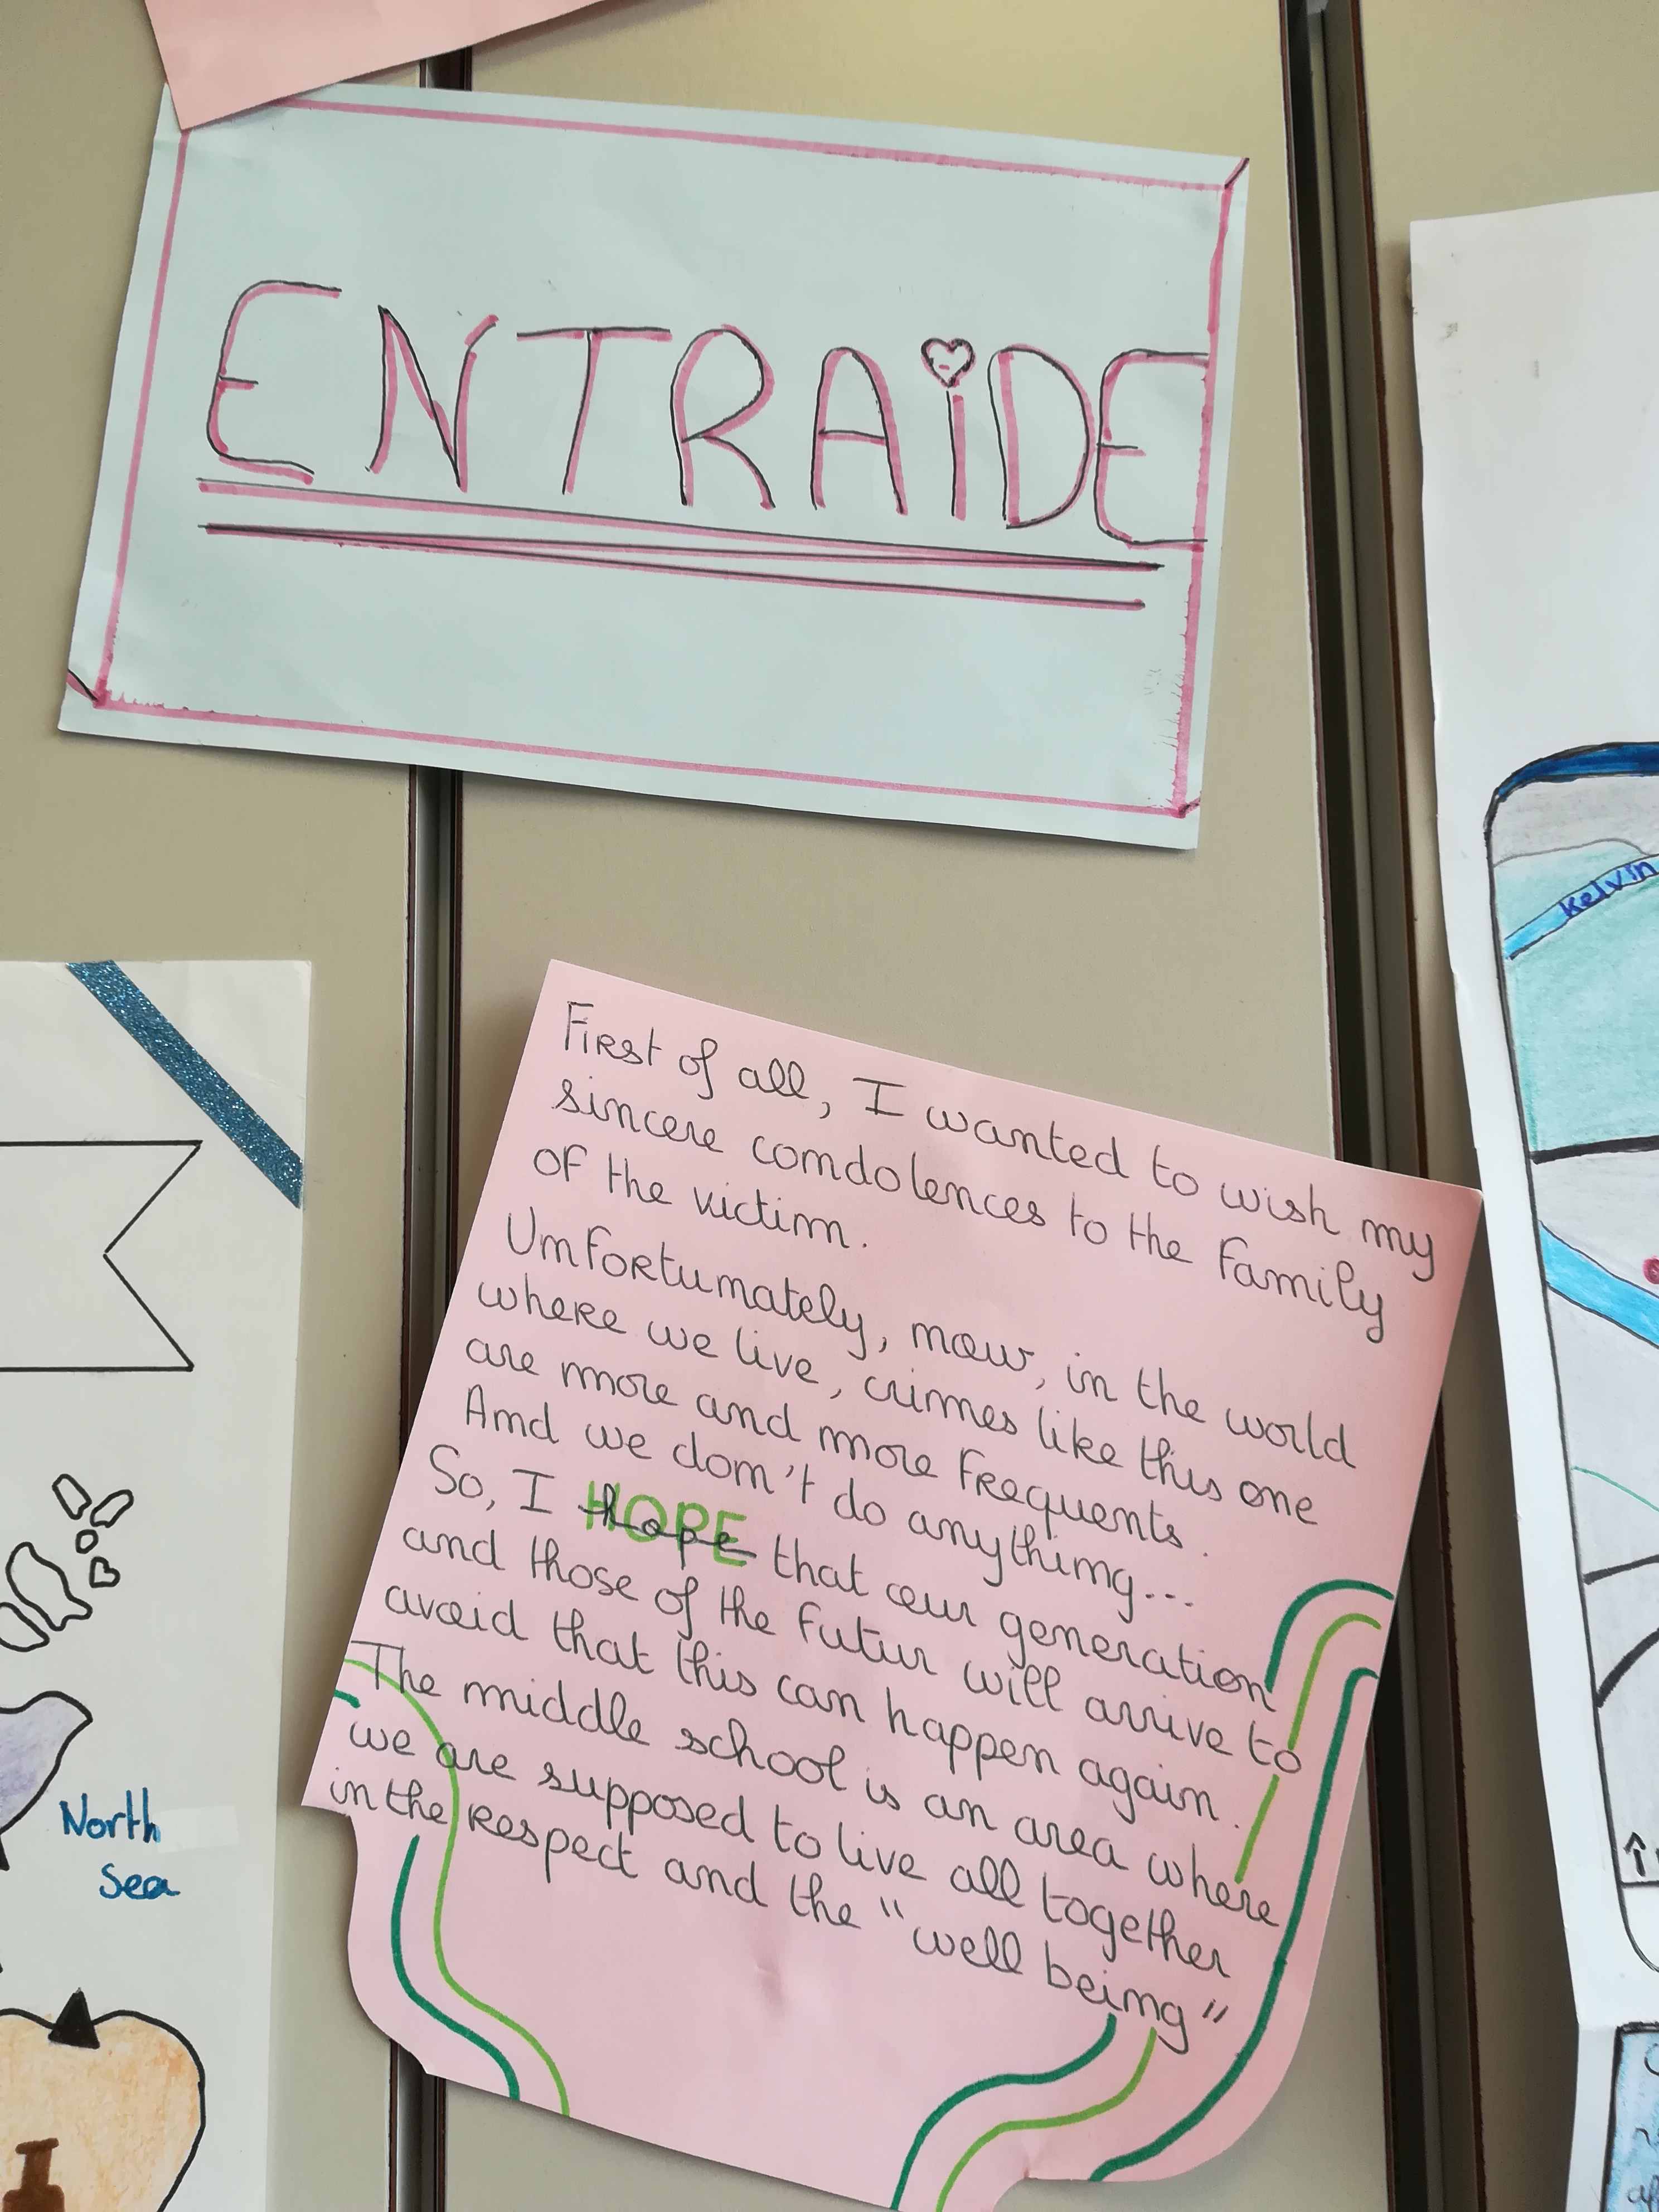 ENTRAiDE
First of all, I wanted to wish my
sincere comdolences to the family
of the victim.
Umfortumately, mow, in the world
where we live, crimes like this one
are more and more frequents.
Amd we dom't do anythimg...
So, I hope HOPE that our generation
and those of the futur will arrive to
avoid that this can happen again.
The middle school is an area where
we are supposed to live all together
in the respect and the "well being"
North
Sea
Kelvin